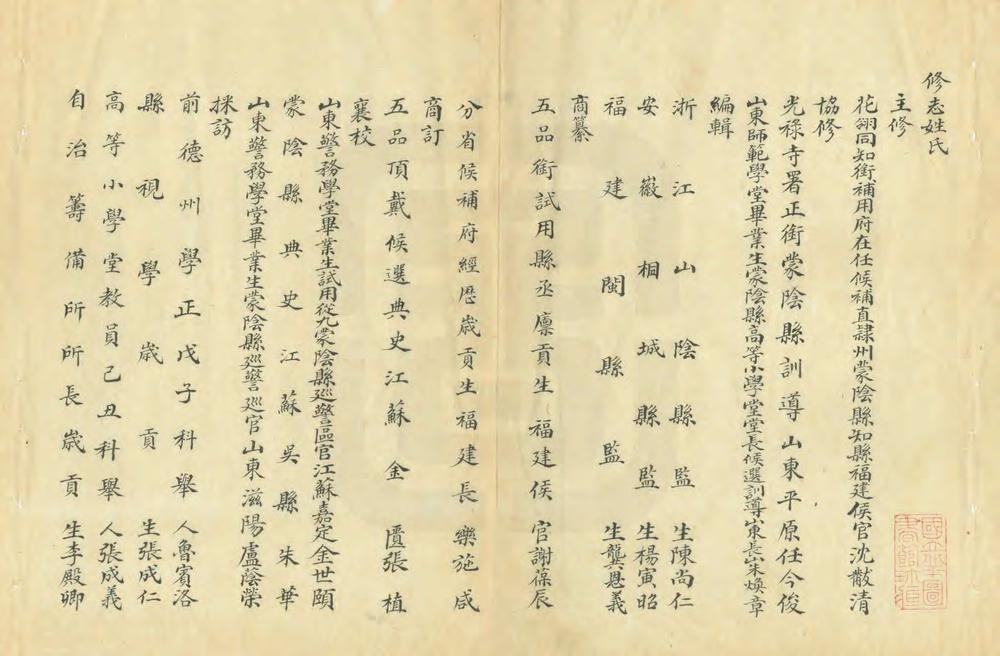 修志姓氏
主修
花翎同知銜補用府在任候補直隸州蒙陰縣知縣福建侯官沈黻清
協修
光祿寺署正銜蒙陰縣訓導山東平原任今俊
山東師範學堂畢業生蒙陰縣高等小學堂堂長候選訓導山東長山朱煥章
編輯
浙江山陰縣監生陳尚仁
安徽桐城縣監生楊寅昭
福建閩縣監生龔恩義
商纂
五品銜試用縣丞廩貢生福建侯官謝葆辰
分省候補府經歷歲貢生福建長樂施咸
商訂
五品頂戴候選典史江蘇金匱張植
襄校
山東警務學堂畢業生試用從九蒙陰縣巡警區官江蘇嘉定金世頤
蒙陰縣典史江蘇吳縣朱華
山東警務學堂畢業生蒙陰縣巡警巡官山東滋陽盧蔭榮
採訪
前德州學正戊子科舉人魯賓洛
縣視學歲貢生張成仁
高等小學堂教員己丑科舉人張成義
自治籌備所所長歲貢生李殿卿